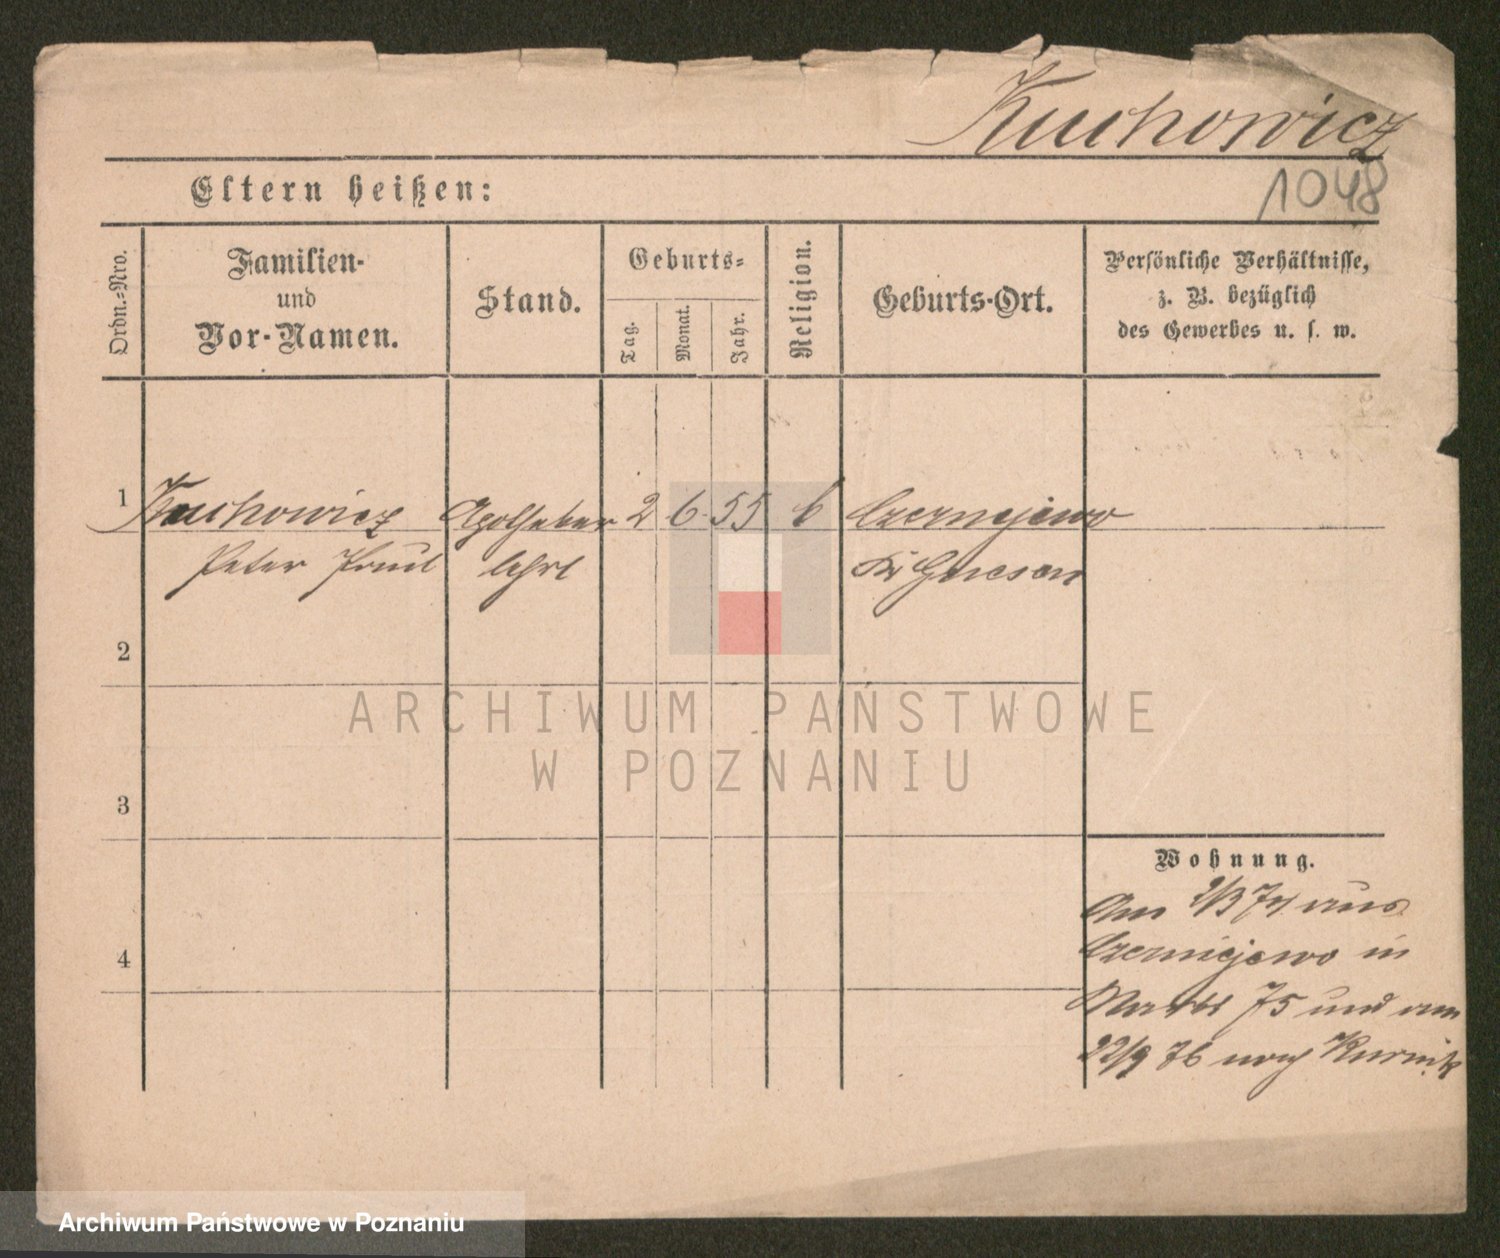 Kuchowicz
Eltern heißen:
1048
Ordn.-Nro.
Familien-
und
Vor-Namen.
Stand.
Geburts-
Tag.
Monat.
Jahr.
Religion.
Geburts-Ort.
Persönliche Verhältnisse,
z. B. bezüglich
des Gewerbes u. s. w.
1 Kuchowicz Apotheker 2 6 55 Czerniejewo
Peter Paul lehrl Kr Gnesen
2
ARCHIWUM PAŃSTWOWE
W POZNANIU
3
Wohnung.
Am 2/3 74 aus
4
Czerniejewo in
Markt 75 und am
22/9 76 nach Kurnik
Archiwum Państwowe w Poznaniu